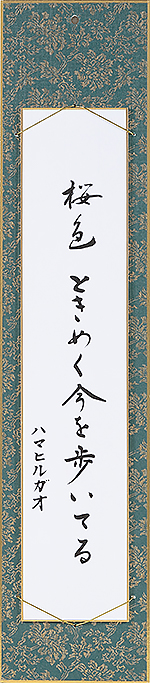 桜色 ときめく今を歩いてる
ハマヒルガオ